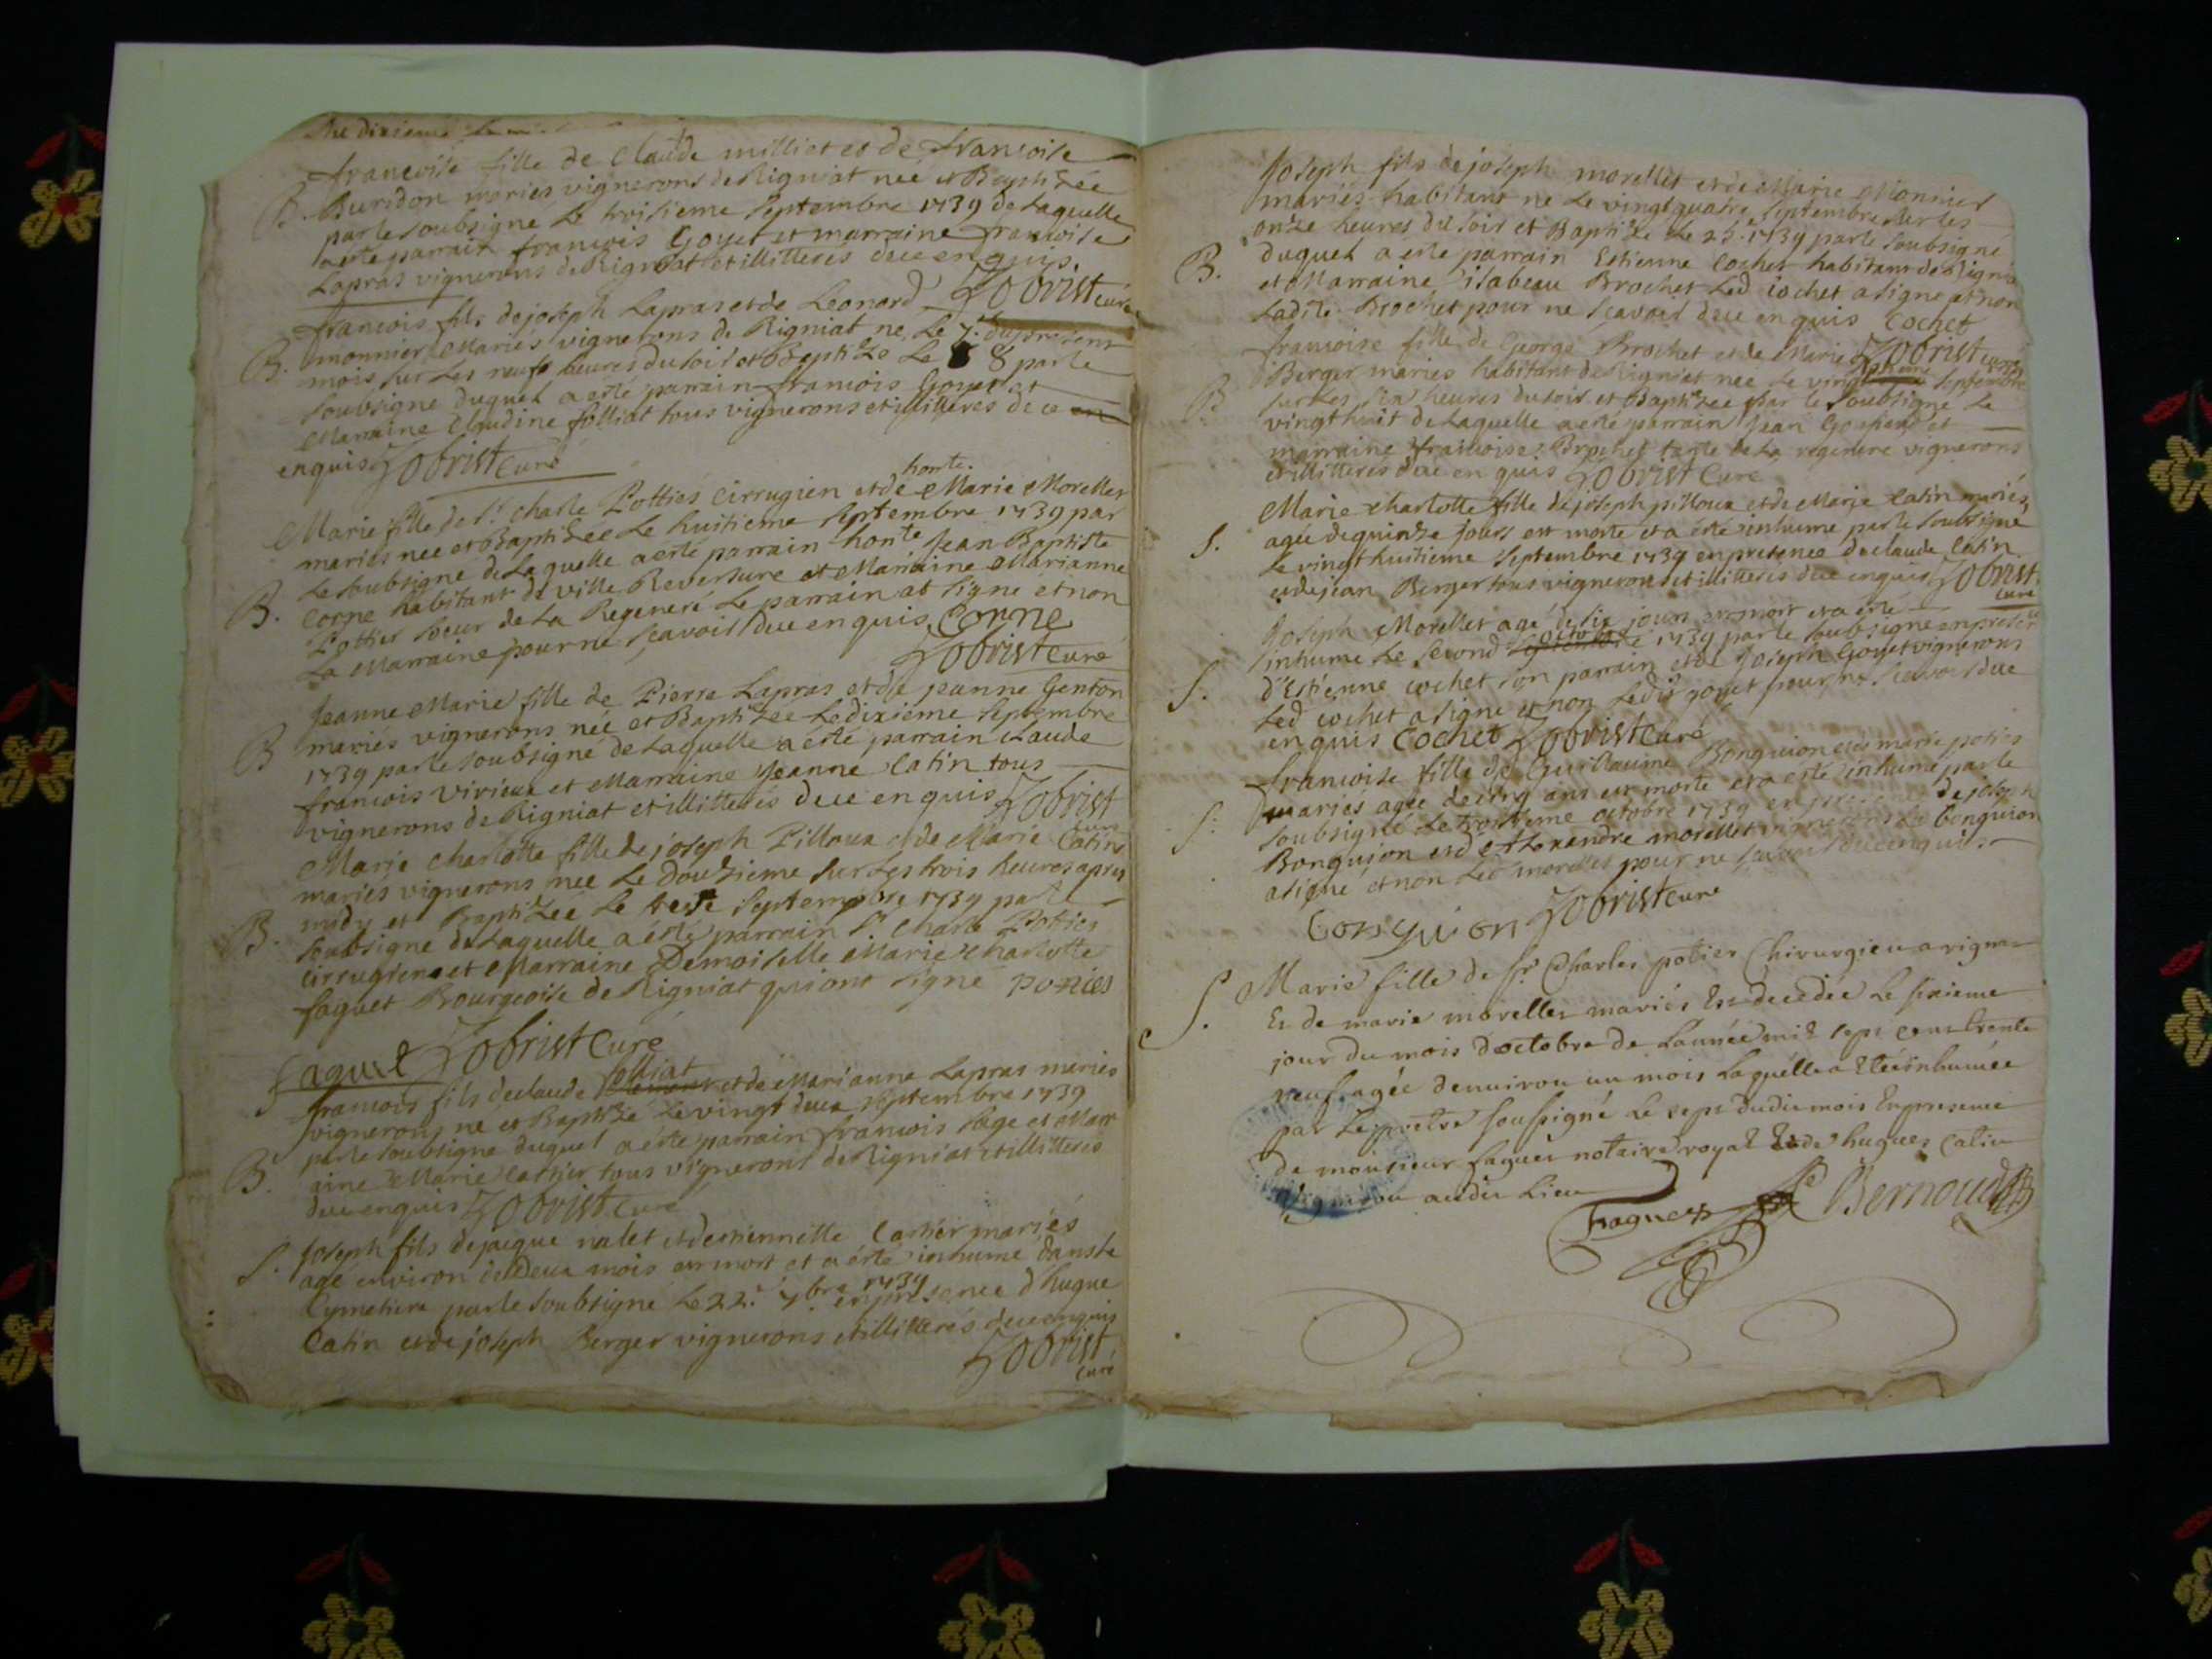 françoise fille de Claude milliet et de françoise
B. Buridon mariés vignerons de Rigniat neé et Baptizée
par le soubsigné Le troisieme septembre 1739 de Laquelle
a esté parrain françois Goyet et marraine françoise
Lapras vignerons de Rigniat et illitterés de ce enquis.
Zobrist curé
françois fils de joseph Lapras et de Leonard
B. monnier Mariés vignerons de Rigniat ne Le 7.e du present
mois sur Les neufs heures du soir et Baptizé Le 8 par le
soubsigné duquel a esté parrain françois Goyet et
Marraine Claudine folliat tous vignerons et illitterés de ce
enquis Zobrist Curé
honte.
Marie fille de sr. Charle Pottiés cirrugien et de Marie Morellet
mariés neé et Baptizée Le huitieme septembre 1739 par
Le soubsigné de Laquelle a esté parrain honte Jean Baptiste
B. Corne habitant de ville Reversure et Marraine Marianne
Pottier soeur de La Regeneré Le parrain at signé et non
La Marraine pour ne sçavoir de ce enquis. Corne
Zobrist Curé
Jeanne Marie fille de Pierre Lapras et de jeanne Genton
B mariés vignerons neé et Baptizée Le dixieme septembre
1739 par le soubsigné de Laquelle a esté parrain claude
françois Virieux et Marraine Jeanne Catin tous
vignerons de Rigniat et illitterés de ce enquis Zobrist
Curé
Marie Charlotte fille de joseph Pilloux et de Marie Catin
mariés vignerons neé Le Douzieme sur Les trois heures apres
B. midy et Baptizée Le septembre 1739 par le
soubsigné de Laquelle a esté parrain sr. Charle Potties
cirrugien et Marraine Demoiselle Marie Charlotte
faguet Bourgeoise de Rigniat qui ont signé Potties
faguet Zobrist Curé
folliat
françois fils de claude et de Marianne Lapras mariés
vignerons né et Baptizé Le vingt deux septembre 1739
par le soubsigné duquel a esté parrain françois sage et Marr
B. aine Marie Cartier tous vignerons de Rigniat et illitterés
de ce enquis Zobrist Curé
S. Joseph fils de jacque nalet et d'estiennette Cartier mariés
agé environ de Deux mois est mort et a esté inhumé dans le
Cymetiere par le soubsigné Le 22.e 7bre 1739 en presence d'hugue
Catin et de joseph Berger vignerons et illitterés de ce enquis
Zobrist
Curé
Joseph fils de joseph morellet et de Marie Monnier
mariés habitant né Le vingt quatre septembre sur les
onze heures du soir et Baptizé Le 25. 1739 par le soubsigné
B. duquel a esté parrain Estienne Cochet habitant de Rignia
et Marraine isabeau Brochet Led cochet a signé et non
Ladite Brochet pour ne sçavoir de ce enquis Cochet
Zobrist curé
françoise fille de George Brochet et de Marie
B. Berger mariés habitant de Rigniat neé Le vingt septieme septembre
sur Les six heures du soir et Baptizée par le soubsigné Le
vingt huit de Laquelle a esté parrain Jean et
marraine françoise Brochet tante de La regenere vignerons
et illitterés de ce enquis Zobrist Curé
Marie charlotte fille de joseph pilloux et de Marie Catin mariés,
S. agée de quinze jours est morte et a esté inhumé par le soubsigné
Le vingt huitieme septembre 1739 en presence de claude Catin
et de jean Berger tous vignerons et illitterés de ce enquis Zobrist
Curé
Joseph Morellet agé de six jours est mort et a esté
octobre
inhumé Le second septembre 1739 par le soubsigné en presence
S. d'Estienne cochet son parrain et de Joseph Goyet vignerons
Led cochet a signé et non Ledit goyet pour ne sçavoir de ce
enquis Cochet Zobrist Curé
françoise fille de Guillaume Bonguion et de marie poties
mariés agée de cinq ans est morte et a esté inhumé par le
S. soubsigné Le troisieme octobre 1739 en presence de joseph
Bonguion et d'Alexandre morellet vignerons Le bonguion
a signé et non Led morellet pour ne sçavoir de ce enquis.
Bonguion Zobrist Curé
S. Marie fille de sr. Charles potier Chirurgien a rignia
Et de marie morellet mariés Est decedée Le sixieme
jour du mois d'octobre de L'année mil sept cent trente
neuf agée d'environ un mois Laquelle a Eté inhumée
par Le pretre soussigné Le sept dudit mois En presence
de monsieur faguet notaire royal Et de hugues Catin
vigneron audit Lieu
faguet Bernoud